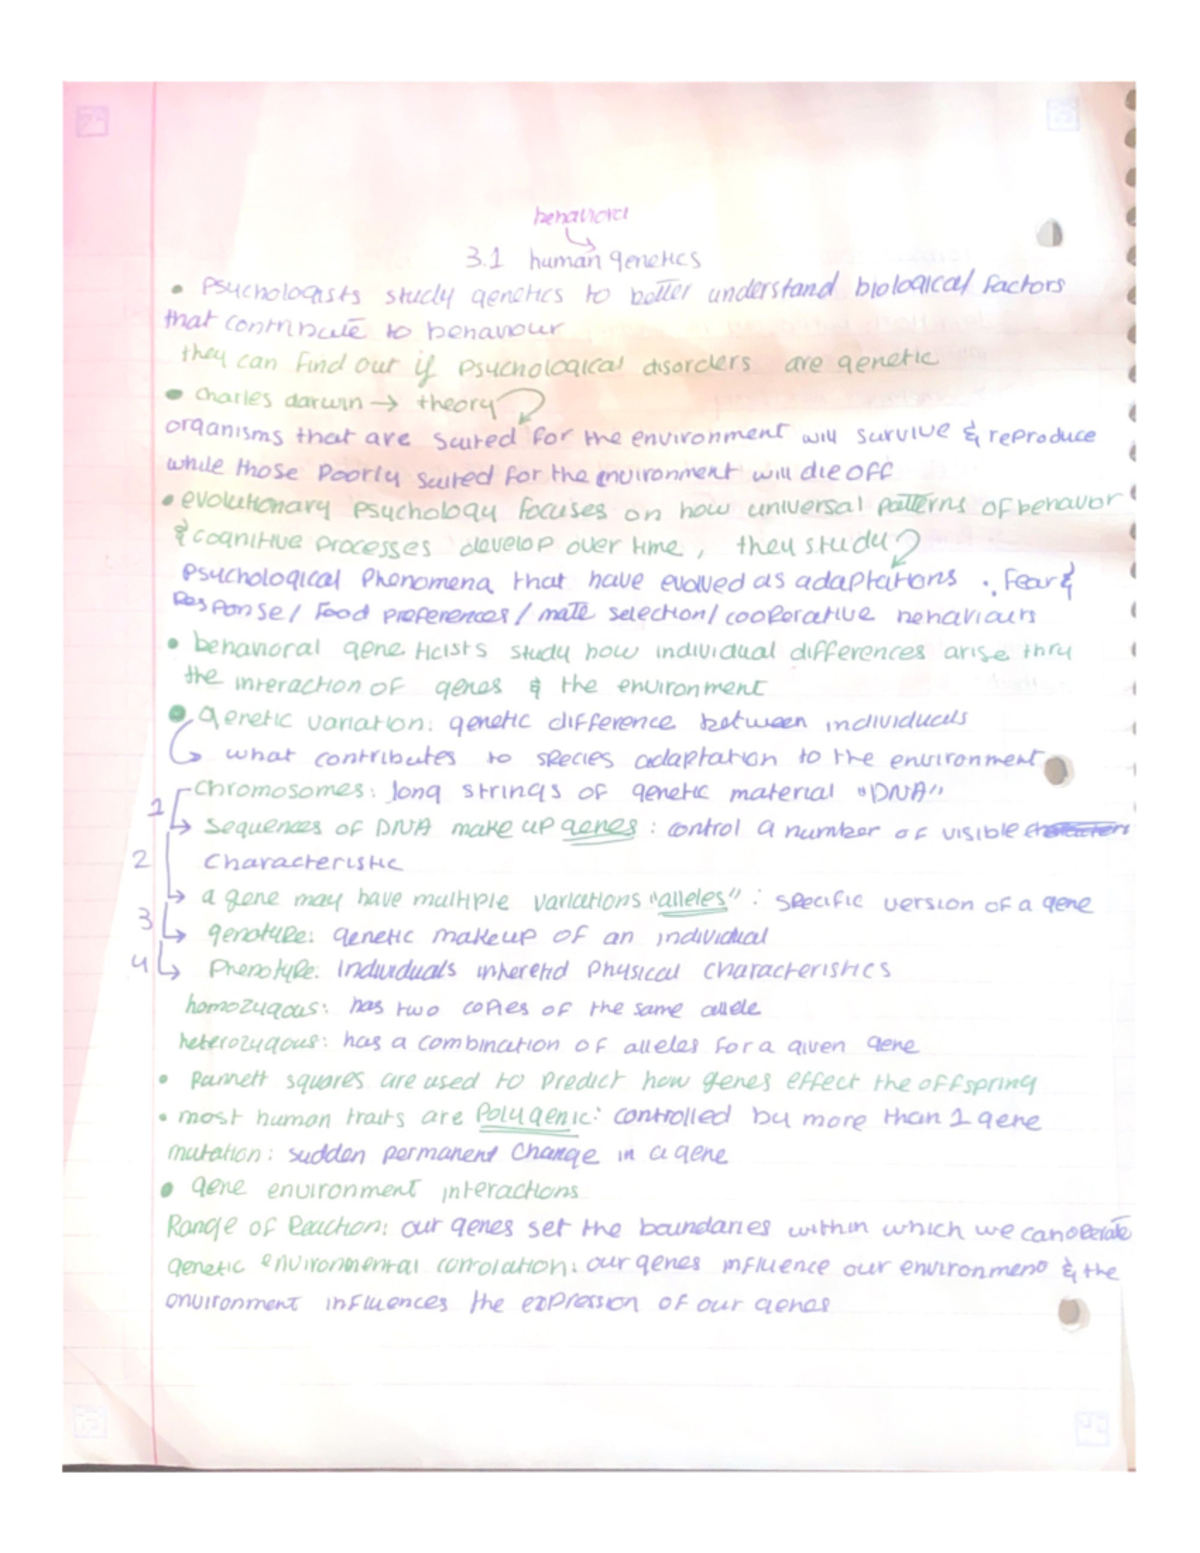 behavioral
3.1 human genetics
• Psychologists study genetics to better understand biological factors
that contribute to behaviour
they can find out if psychological disorders are genetic
• Charles darwin → theory
organisms that are suited for the environment will survive & reproduce
while those poorly suited for the environment will die off
• evolutionary psychology focuses on how universal patterns of behavor
& cognitive processes develop over time, they study
psychological phenomena that have evolved as adaptations . fear &
response / food preferences / mate selection / cooperative behaviours
• behavioral geneticists study how individual differences arise thru
the interaction of genes & the environment
• genetic variation: genetic difference between individuals
↳ what contributes to species adaptation to the environment
chromosomes: long strings of genetic material "DNA"
1 ↳ Sequences of DNA make up genes : control a number of visible
2 characteristic
↳ a gene may have multiple variations "alleles" : specific version of a gene
3 ↳ genotype: genetic makeup of an individual
4 ↳ Phenotype: individuals inheretid physical characteristics
homozygous: has two copies of the same allele
heterozygous: has a combination of alleles for a given gene
• Pannett squares are used to predict how genes effect the offspring
• most human traits are Polygenic: controlled by more than 1 gene
mutation: sudden permanent change in a gene
• gene environment interactions
Range of Reaction: our genes set the boundaries within which we can operate
genetic environmental corrolation: our genes influence our environment & the
environment influences the expression of our genes